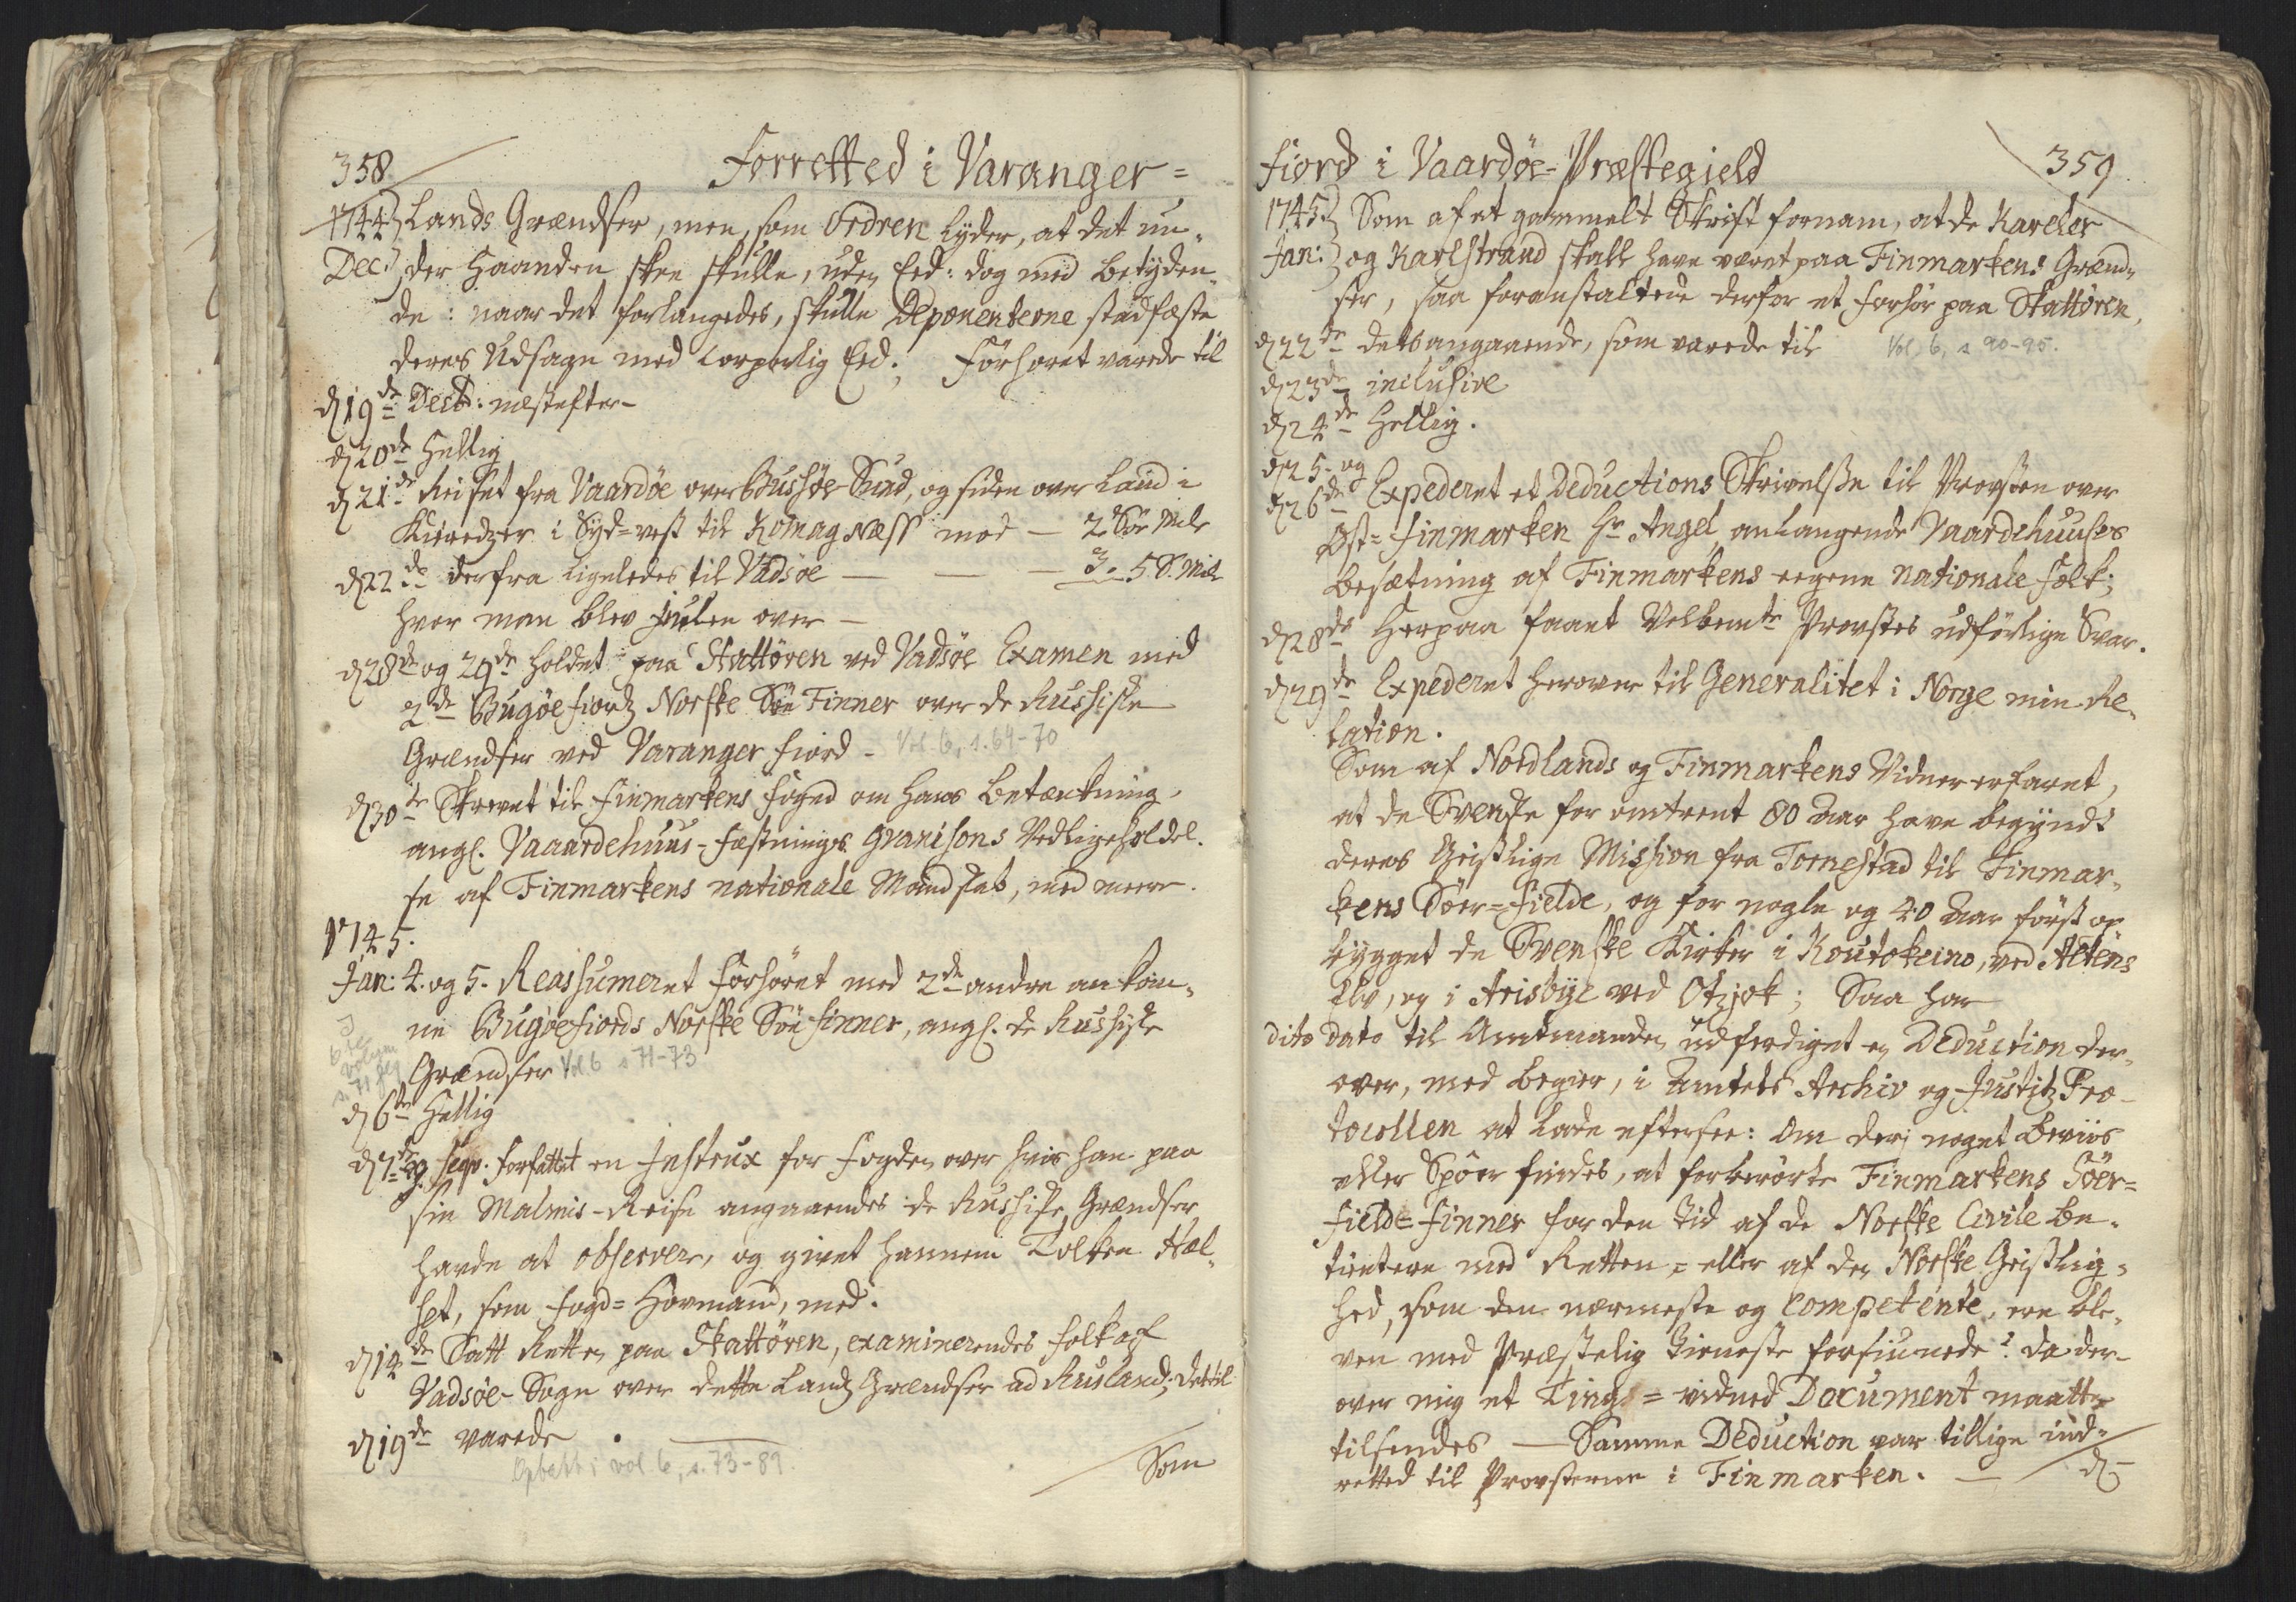 358
Forretted i Varanger=
1744 Lands Grændser, men, som Ordren lyder, at det un-
Dec: der Haanden skee skulle, uden Eed: dog med betyden-
de: naar det forlangedes, skulle Deponenterne stadfæste
deres Udsagn med Corporlig Eed. Förhoret varede til
d 19de Decb: næstefter-
d 20de Hellig
d 21de Reiset fra Vaardöe over Bussöe Sund, og siden over Land i
Kieredzer i Syd=vest til Komag Næss mod — 2 Sör Mile
d 22de derfra ligeledes til Vadsöe — — — 3. 5 S. Mile
hvor man blev Julen over —
d 28de og 29de holdet paa Skattören ved Vadsöe Examen med
2de Bugöefiordz Norske Söe Finner over de Russiske
Grændser ved Varanger fiord - Vol. 6, s. 64-70
d 30te Skrevet til Finmarkens Foged om hans betænkning,
angl. Vaaardehuus-Fæstnings Guarnisons Vedligeholdel-
se af Finmarkens nationale Mandskab, med meere.
1745.
Jan: 4. og 5. Reassumeret Forhöret med 2de andre ankom-
ne Bugöefiords Norske Söe finner, angl. de Russiske
Grændser Vol. 6 s 71-73
d 6te Hellig
d 7de og seqv. forfattet en Instrux for Fogden over hvis han paa
sin Malmis-Reise angaaendes de Russiske Grændser
havde at observere, og givet hannem Tolken Hæl-
set, som Fogd=Hövmand, med.
d 14de Satt Retten paa Skattören, examinerendes Folk af
Vadsöe-Sogn over dette Landz Grændser ad Rusland; det til
d 19de varede.
vol. 6, s. 73-89.
Som
fiord i Vaardöe-Præstegield
359
1745. Som af et gammelt Skrift fornam, at de Kareler
Jan: og Karlstrand skall have været paa Finmarkens Grænd-
ser, saa foranstaltede derfor et forhör paa Skattören,
d 22de dets angaaende, som varede til Vol. 6, s 90-95.
d 23de inclusive
d 24de Hellig.
d 25. og
d 26de Expederet et Deductions Skrivelse til Provsten over
Öst=Finmarken Hr Angel anlangende Vaardehuuses
Besætning af Finmarkens eegene nationale Folk;
d 28de Herpaa faaet Velbemte Provstes udförlige Svar.
d 29de Expederet herover til Generalitet i Norge min Re-
lation.
Som af Nordlands og Finmarkens Vidner erfaret,
at de Svenske for omtrent 80 Aar have begyndt
deres Geistlige Mission fra Tornestad til Finmar-
kens Söer=Fielde, og for nogle og 40 Aar först op
bygget de Svenske Kirker i Koutokeino, ved Altens
Elv, og i Arisbye ved Otzjok; Saa har
dito dato til Amtmanden udferdiget en Deduction der-
over, med begier, i Amtets Archiv og Justitz Pro-
tocollen at lade eftersee: Om derj noget Beviis
eller Spöer findes, at forberörte Finmarkens Söer=
field=Finner for den Tid af de Norske Civile be-
tientere med Retten = eller af den Norske Geistlig-
hed, som den nærmeste og Competente, ere ble-
ven med Præstelig tieneste forsiunede? da der-
over mig et Tings=vidnes Document maatte
tilsendes — Samme Deduction var tillige ind-
retted til Provsterne i Finmarken. —
d